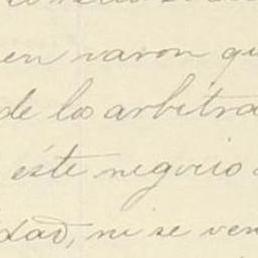 en razon qu
de los arbitra
este negocio
dad, ni se ven